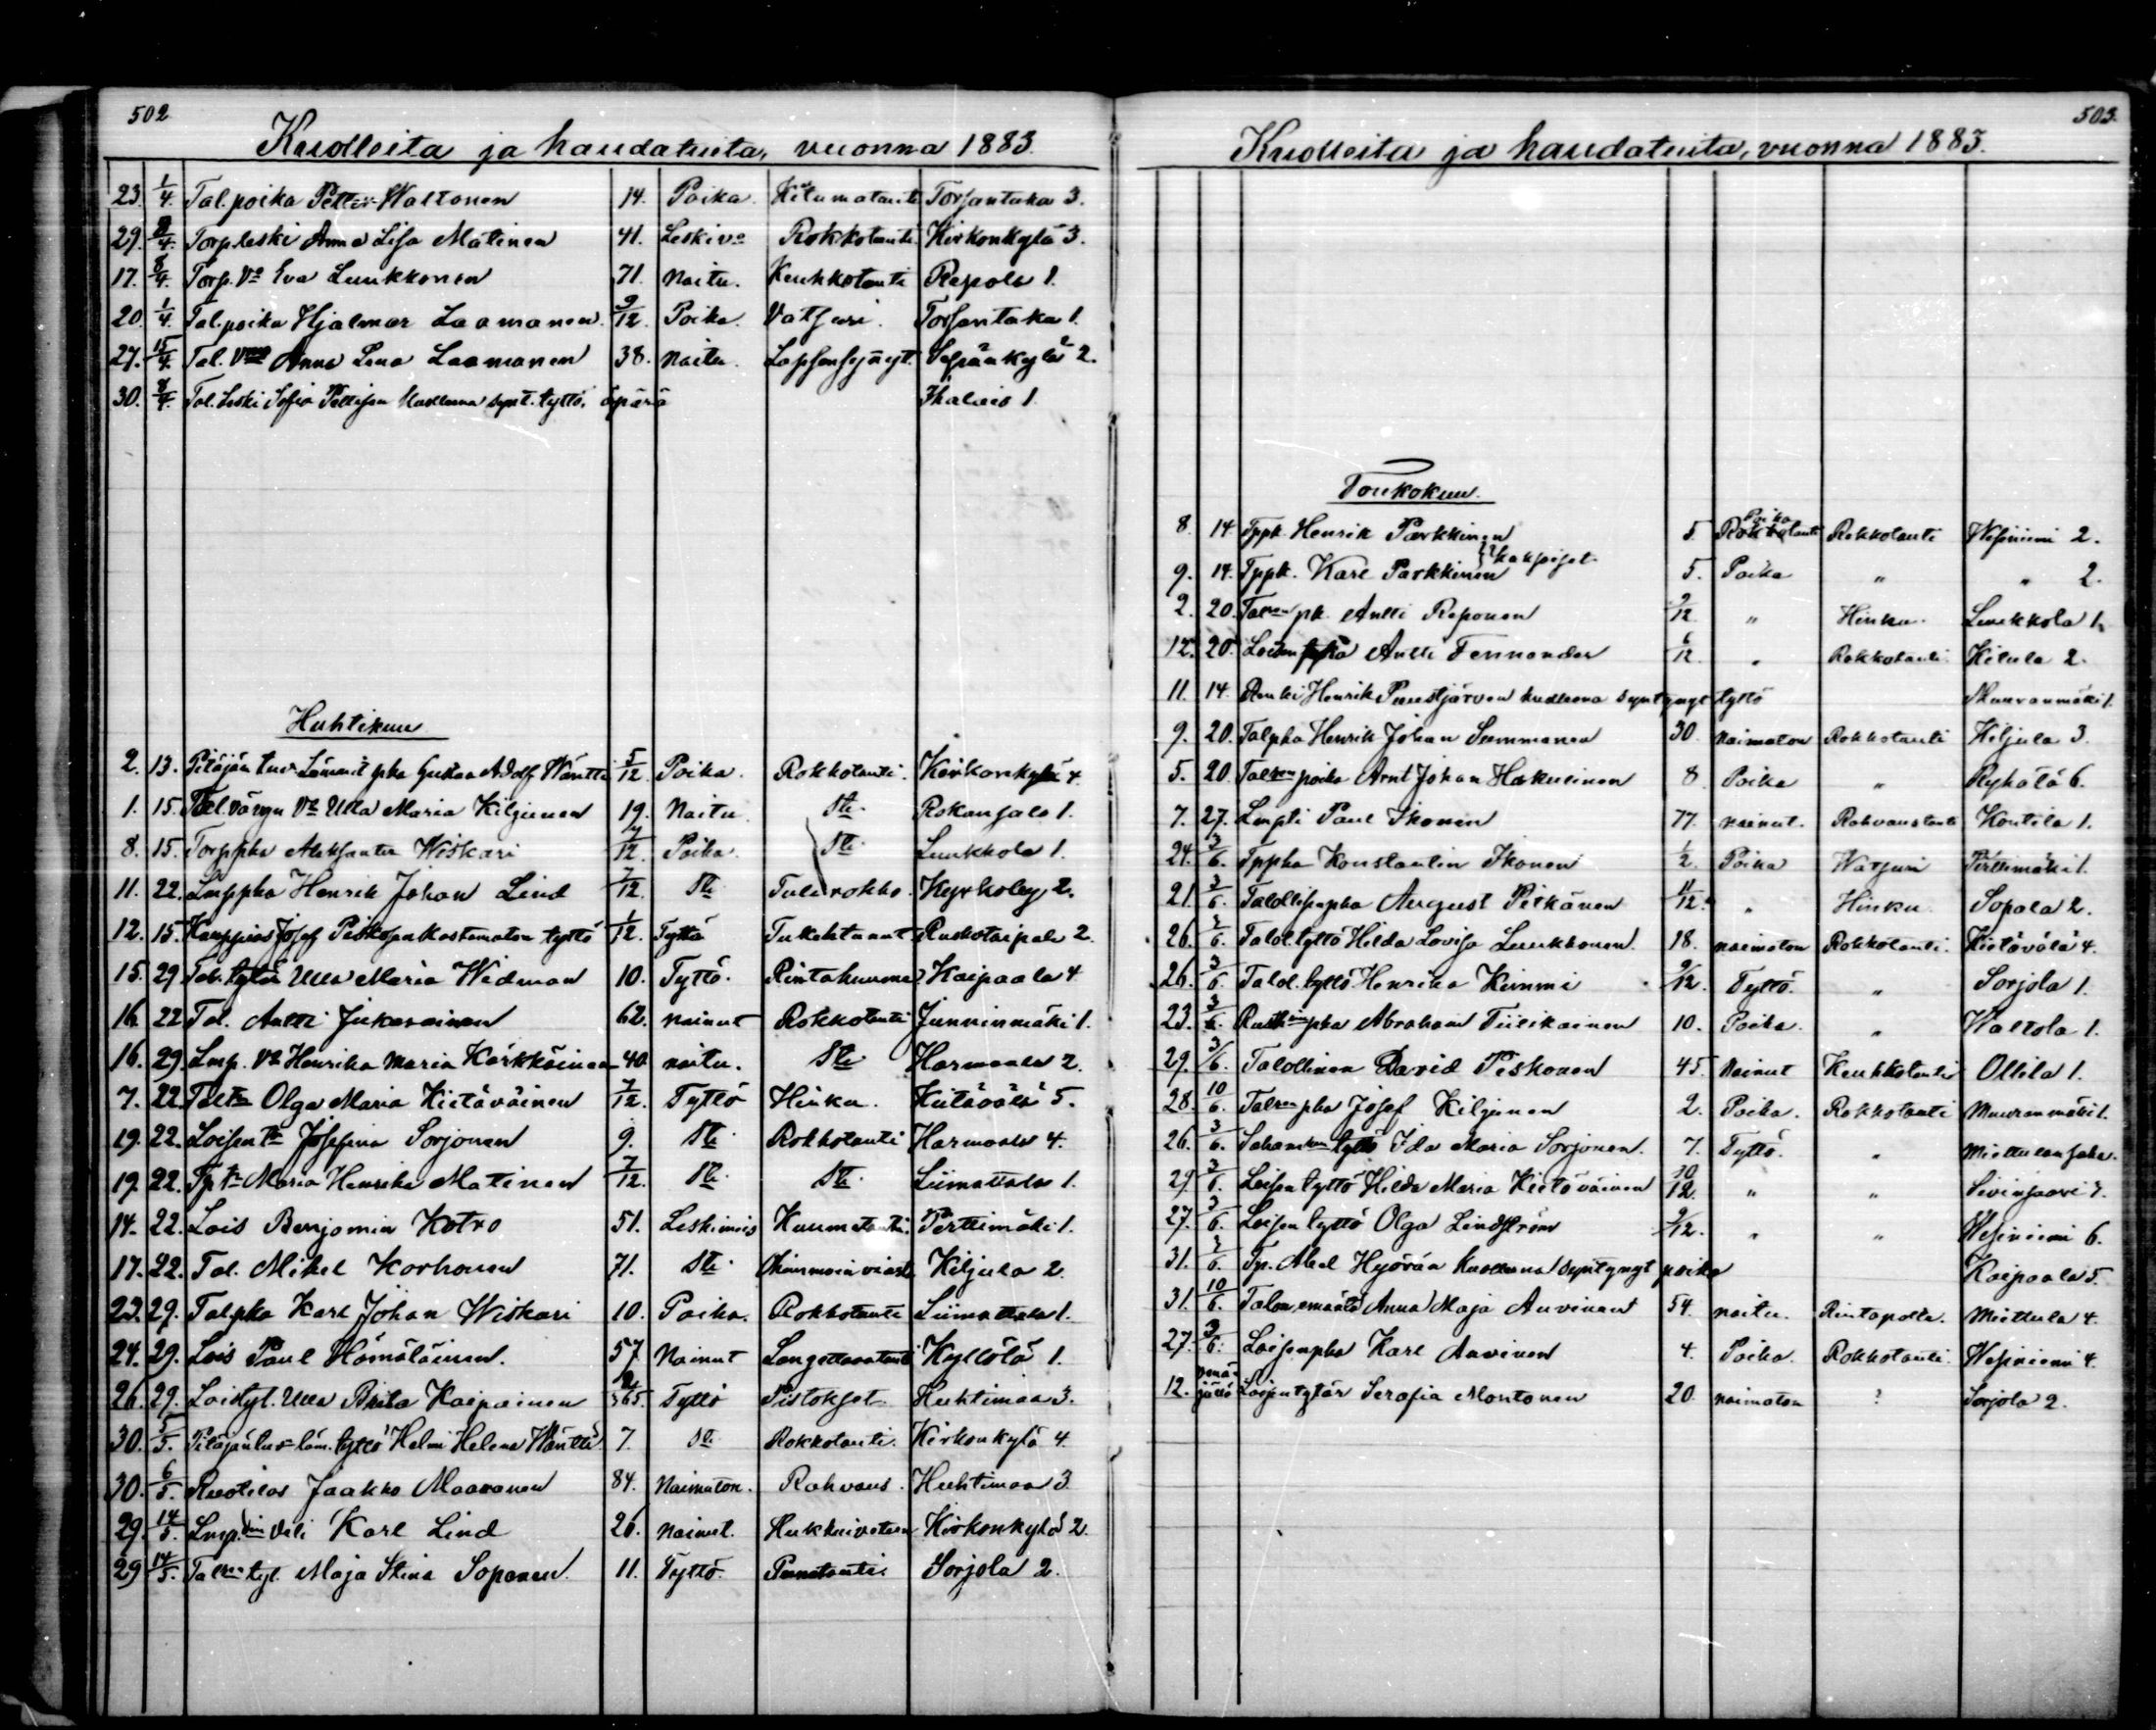 502
Kuolleita ja haudatuita, vuonna 1883.
23. 1/4. Tal. poika Petter Waltonen 14. Poika Torsantaka 3.
29. 8/4. Torp. leski Anna Lisa Matinen 41. Leski vo Rokkotauti Kirkonkylä 3.
17. 8/4. Torp. Vo Eva Luukkonen 71. Naitu. Keuhkotauti Rapola 1.
20. 1/4. Tal. poika Hjalmar Laamanen. 9/12. Poika. Vatsuri. Torsantaka 1.
27. 15/4. Tal. Vmo Anna Lena Laamanen 38. Naitu. Lapsensynyt. Sepänkylä 2.
30. 8/4. Tal. Leski Sofia Pellisen kuolleena synt. tyttö. äpärä Ihalais 1.
Huhtikuu
2. 13. Pitäjän Lämmit pka Gustaa Adolf Wäntti 5/12. Poika. Rokkotauti. Kirkonkylä 4.
1. 15. Tal. vävyn Vo Ulla Maria Kiljunen 19. Naitu. Ste Rokansalo 1.
8. 15. Torppka Aleksanter Wiskari /12 Poika. Ste Luukkola 1.
11. 22. Lmppka Henrik Johan Lind 7/12. Ste Tulirokko. Kyrkoby 2.
12. 15. Kauppias Josef Piskosen kastematon tyttö 1/12. Tyttö Tukehtunut Ruokotaipale 2.
15. 29. Tal. tytär Ulla Maria Widman 10. Tyttö. Kaipaala 4.
16. 22. Tal. Antti Jukarainen 62. Nainut Rokkotauti Junninmäki 1.
16. 29. Lmp. Vo Henrika Maria Kärkkäinen 40. naitu. Ste Harmaala 2.
7. 22. Olga Maria Kietäväinen 7/12. Tyttö Hinku. Kietävälä 5.
19. 22. Loisen Josefina Sorjonen 9. Ste Rokkotauti Harmaala 4.
19. 22. Maria Henrika Matinen 7/12. Ste Ste Liimattala 1.
14. 22. Lois Benjamin Kotro 51. Leskimies Kuumetauti. Perttimäki 1.
17. 22. Tal. Mikel Korhonen 71. Ste Kiljula 2.
23. 29. Talpka Karl Johan Wiskari 10. Poika. Rokkotauti Liimattala 1.
24. 29. Lois Paul Hämäläinen. 57 Nainut Kyllölä 1.
26. 29. Loistyt. Ulla Brita Kaipainen 2/365. Tyttö Pistokset Huhtimaa 3.
30. 5/5. Pitäjän lus läm. tyttö Helmi Helena Wäntti 7. Ste Rokkotauti. Kirkonkylä 4.
30. 6/5. Ruotilas Jaakko Maaranen 84. Naimaton. Rahvaus. Huhtimaa 3.
29. 14/5. Lmp. Veli Karl Lind 26. Nainut. Kirkonkylä 2.
29. 14/5. Talsen tyt. Maja Stina Sopanen. 11. Tyttö. Punatauti Sorjola 2.
503.
Kuolleita ja haudatuita, vuonna 1883.
Toukokuu.
8. 14. Tppk. Henrik Parkkinen 5. Poika Rokkotauti Wesiniemi 2.
9. 14. Tppk. Karl Parkkinen kaksoiset. 5. Poika " " 2.
2. 20. Talsen pk. Antti Reponen 9/12 " Hinku. Luukkola 1.
12. 20. Loisen pka Antti Fernander 6/12 " Rokkotauti. Kitula 2.
11. 14. Renki Henrik Puustjärven kuolleena syntynyt tyttö Muuranmäki 1.
9. 20. Talpka Henrik Johan Summanen 30. naimaton Rokkotauti Kiljula 3.
5. 20. Talsen poika Arnt Johan Hakulinen 8 Poika " Ryhälä 6.
7. 27. Lmpti Paul Ikonen 77. nainut. Rahvaustauti Kontila 1.
24. 3/6. Tppka Konstantin Ikonen 1/2. Poika Watsuri Perttimäki 1.
21. 3/6. Talollisenpka August Pitkänen 11/12. " Hinku Sopala 2.
26. 3/6. Talol. tyttö Hilda Lovisa Luukkonen. 18. naimaton Rokkotauti. Kietävälä 4.
26. 3/6. Talol. tyttö Henrika Kimmi 9/12. Tyttö. " Sorjola 1.
23. 3/6. pka Abraham Tiilikainen 10. Poika. " Waltola 1.
29. 3/6. Talollinen David Peskonen 45. Nainut Keuhkotauti Ollila 1.
28. 10/6. Talsen pka Josef Kiljunen 2. Poika. Rokkotauti Muuranmäki 1.
26. 3/6. tyttö Ida Maria Sorjonen. 7. Tyttö. " Miettulan
29. 3/6. Loisen tyttö Hilda Maria Kietäväinen 10/12 " "
27. 3/6. Loisen tyttö Olga Lindström 9/12. " " Wesiniemi 6.
31. 3/6. Tp. Abel Hyövän kuollena syntynyt poika Kaipaala 5.
31. 10/6. Talon emäntä Anna Maja Auvinen 54. naitu. Rintapolte. Miettula 4.
27. 3/6. Loisenpka Karl Auvinen 4. Poika. Rokkotauti. Wesiniemi 4.
12. Loisentytär Serafia Montonen 20. naimaton ? Sorjola 2.